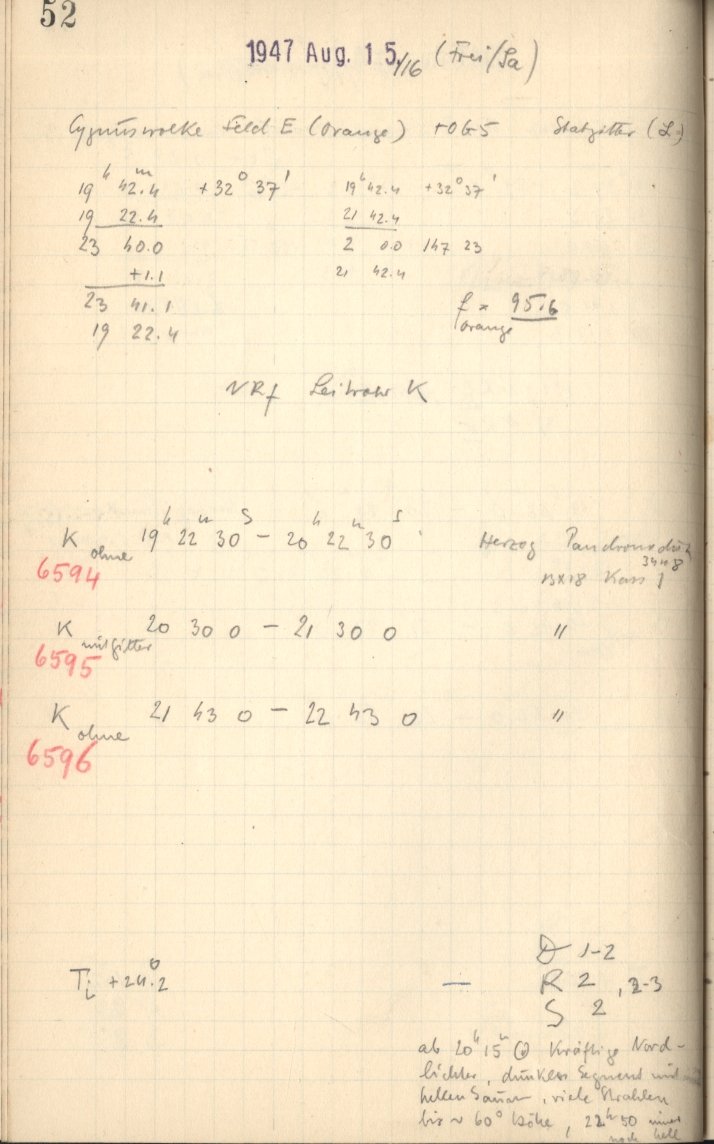 52
1947 Aug. 15./16 (Frei/Sa)
Cygnuswolke Feld E (Orange) + OG5 Stabgitter (L.)
19 h 42.4 m +32° 37' 19 h 42.4 +32° 37'
19 22.4 21 42.4
23 40.0 2 0.0 147 23
+1.1 21 42.4
23 41.1 f = 95.6
19 22.4 orange
NRf Leitrohr K
K ohne 19 h 22 m 30 s - 20 h 22 m 30 s Herzog
6594 13x18 Kass 1
K mit Gitter 20 30 0 - 21 30 0 "
6595
K ohne 21 43 0 - 22 43 0 "
6596
D 1-2
Ti +24°.2 — R 2, 2-3
S 2
ab 20 h 15 m Kräftige Nord-
lichter, dunkles Segment mit
hellen Saum, viele Strahlen
bis ~ 60° Höhe, 22 h 50 immer
noch hell